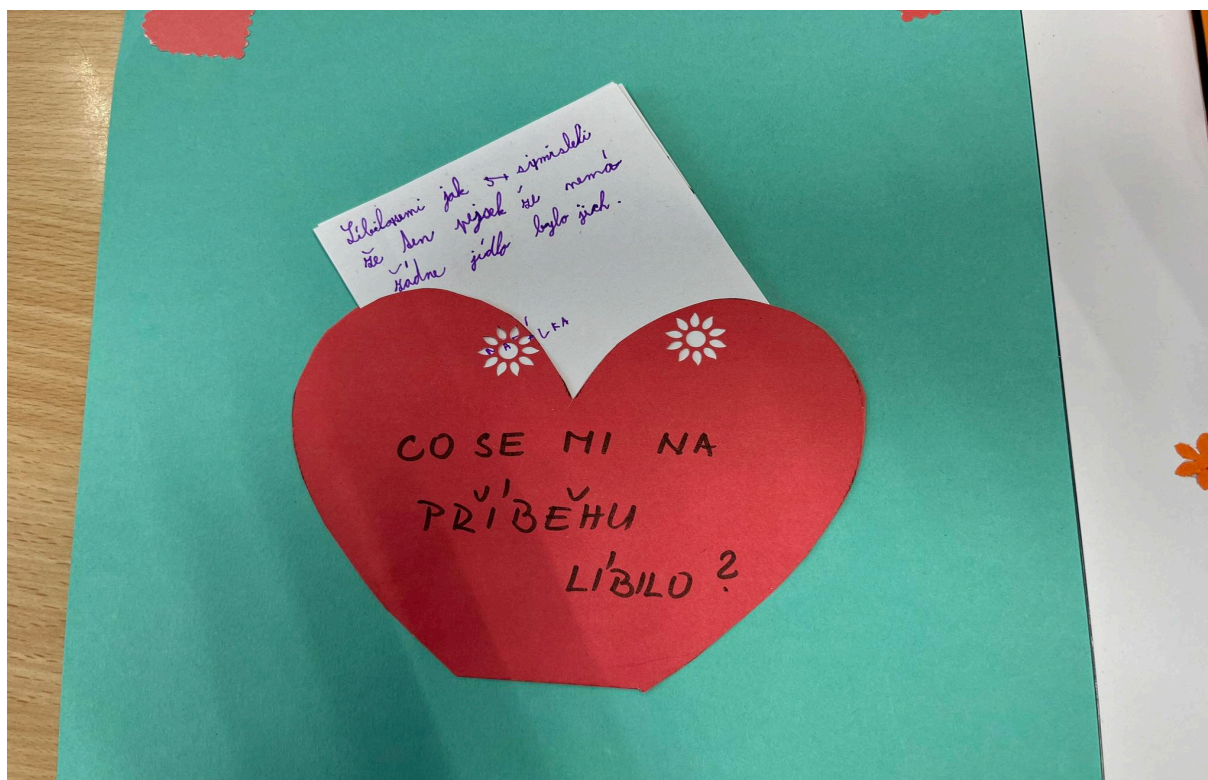 Líbilosemi jak si simisleli
že ten pejsek že nemá
žádne jídlo bylo jich.
NATÁLKA
CO SE MI NA
PŘÍBĚHU
LÍBILO?